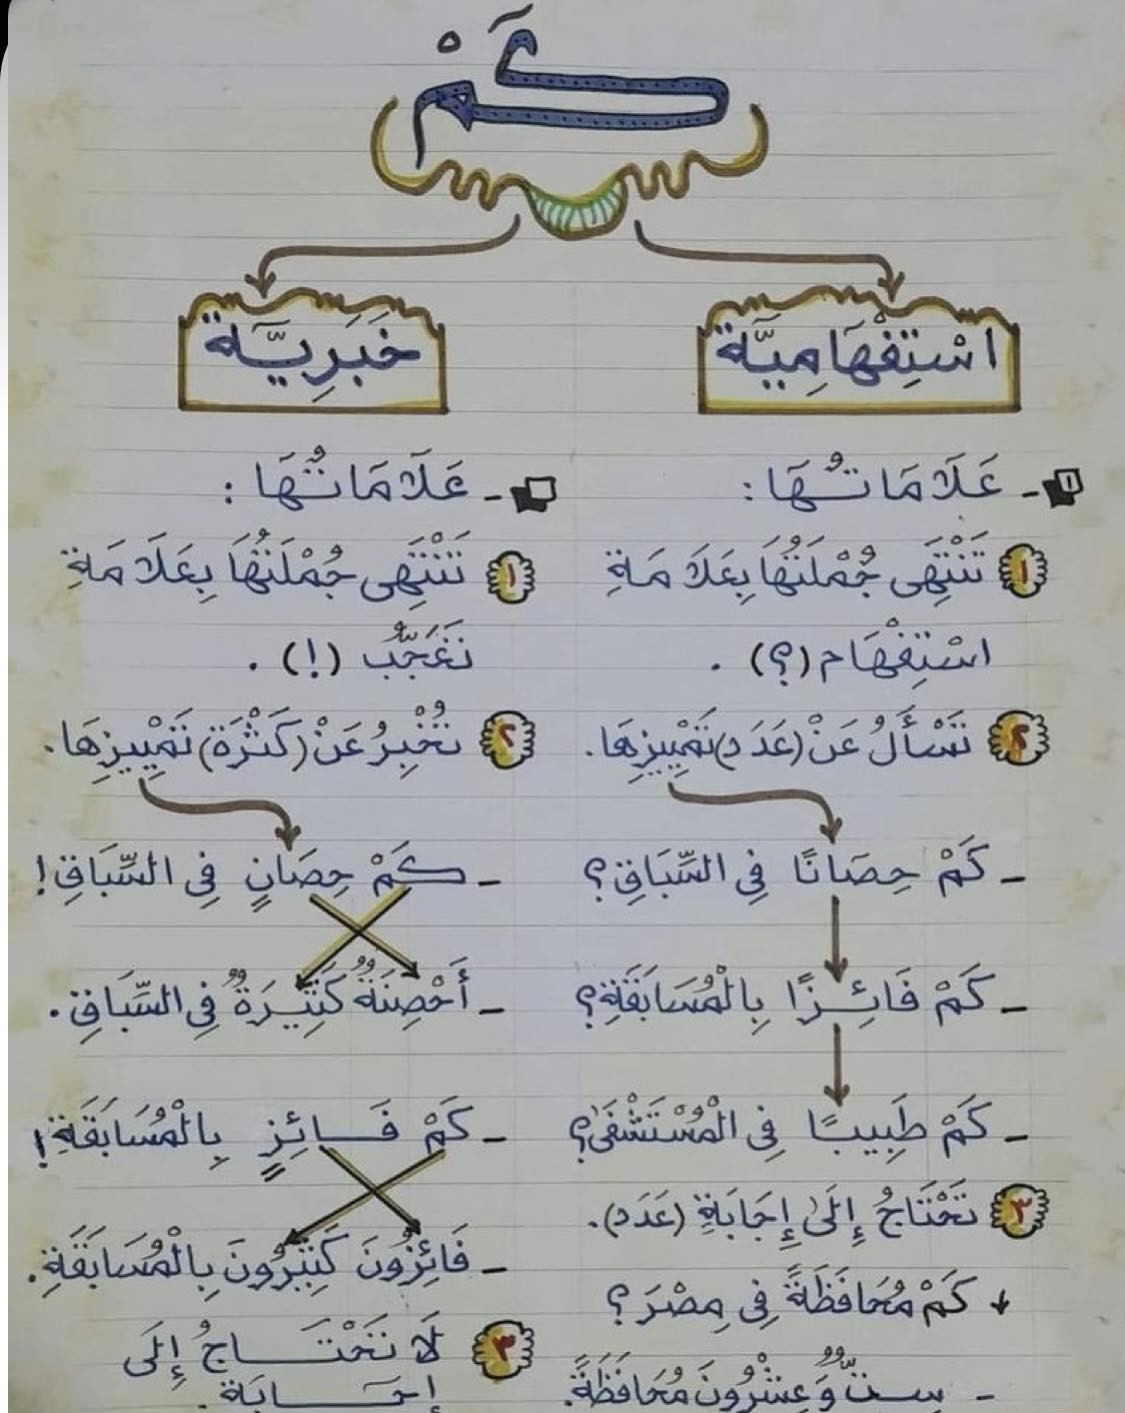 كَمْ
اسْتِفْهَامِيَّة
خَبَرِيَّة
١ - عَلَامَاتُهَا :
١ تَنْتَهِى جُمْلَتُهَا بِعَلَامَةِ
اسْتِفْهَام (؟) .
٢ تَسْأَلُ عَنْ (عَدَد) تَمْيِيزِهَا.
- كَمْ حِصَانًا فِى السِّبَاقِ؟
- كَمْ فَائِزًا بِالْمُسَابَقَةِ؟
- كَمْ طَبِيبًا فِى الْمُسْتَشْفَى؟
٣ تَحْتَاجُ إِلَى إِجَابَةِ (عَدَد).
كَمْ مُحَافَظَةً فِى مِصْرَ ؟
- سِتٌّ وَعِشْرُونَ مُحَافَظَةً.
- عَلَامَاتُهَا :
١ تَنْتَهِى جُمْلَتُهَا بِعَلَامَةِ
تَعَجُّب (!) .
٢ تُخْبِرُ عَنْ (كَثْرَة) تَمْيِيزِهَا.
- كَمْ حِصَانٍ فِى السِّبَاقِ !
- أَحْصِنَةٌ كَثِيرَةٌ فِى السِّبَاقِ.
- كَمْ فَائِزٍ بِالْمُسَابَقَةِ !
- فَائِزُونَ كَثِيرُونَ بِالْمُسَابَقَةِ.
٣ لَا تَحْتَاجُ إِلَى
إِجَابَة .